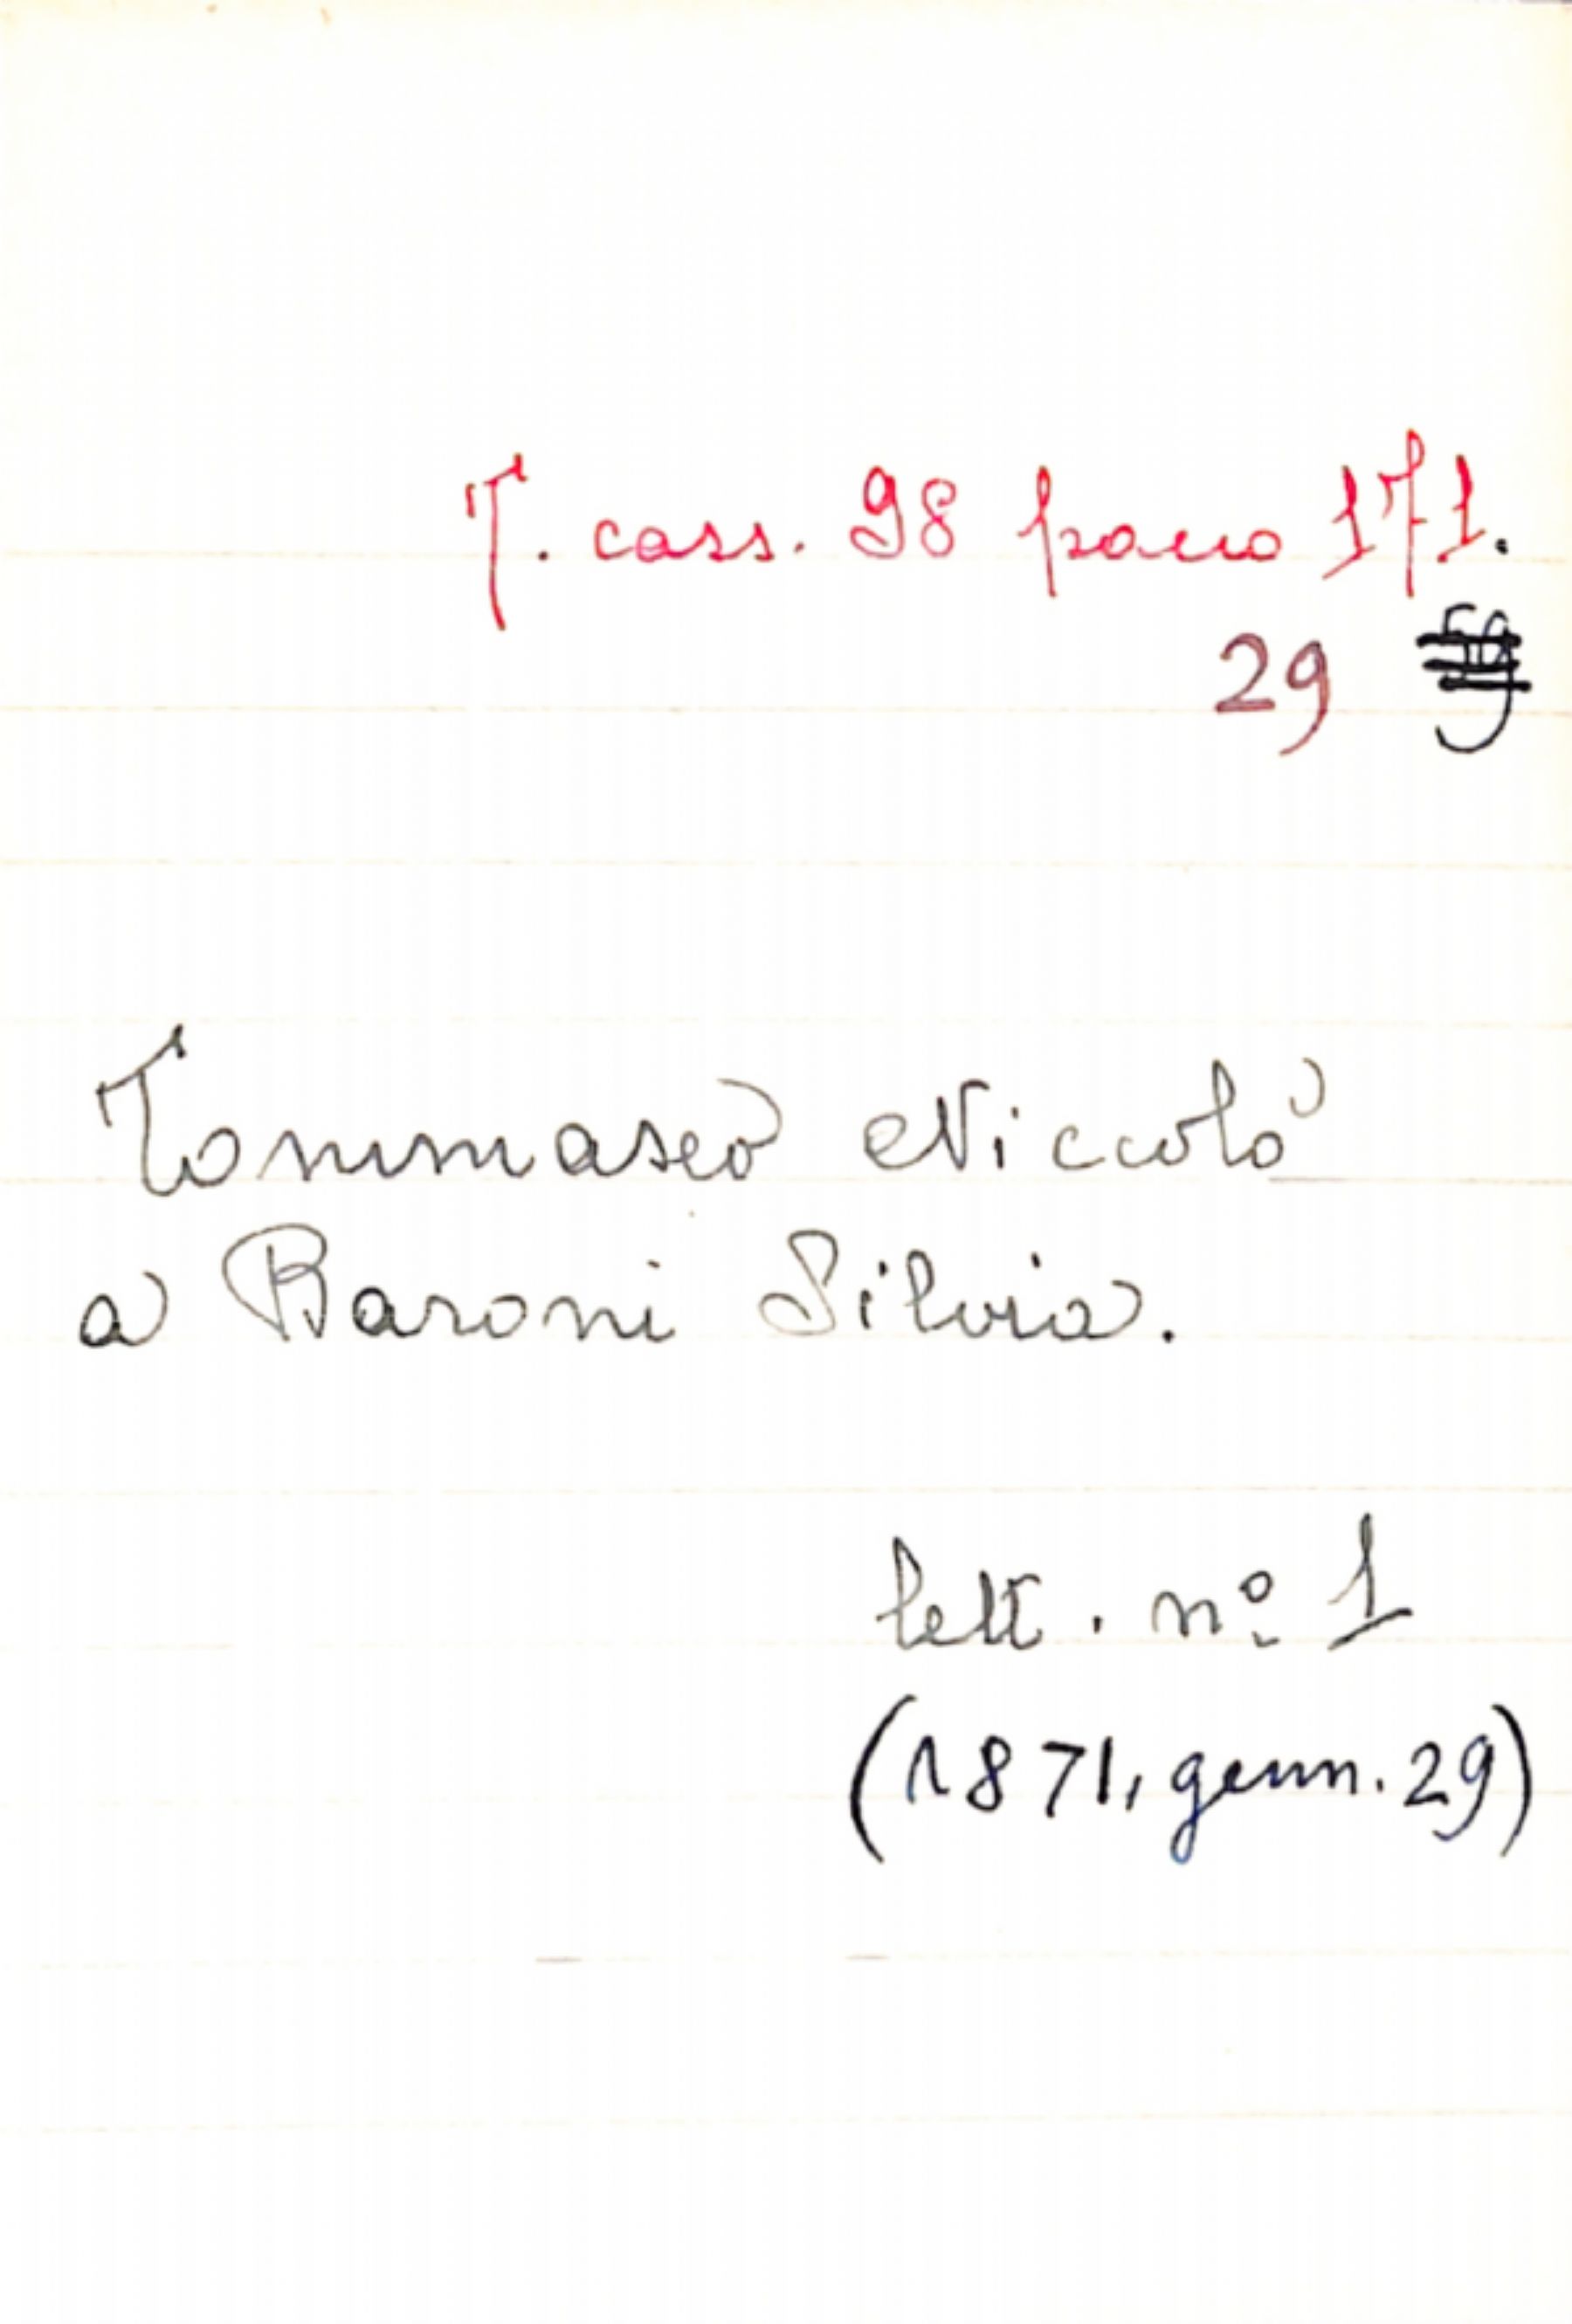 T. cass. 98 pacco 171.
29 59
Tommaseo Niccolò
a Baroni Silvia.
lett. nº 1
(1871, genn. 29)